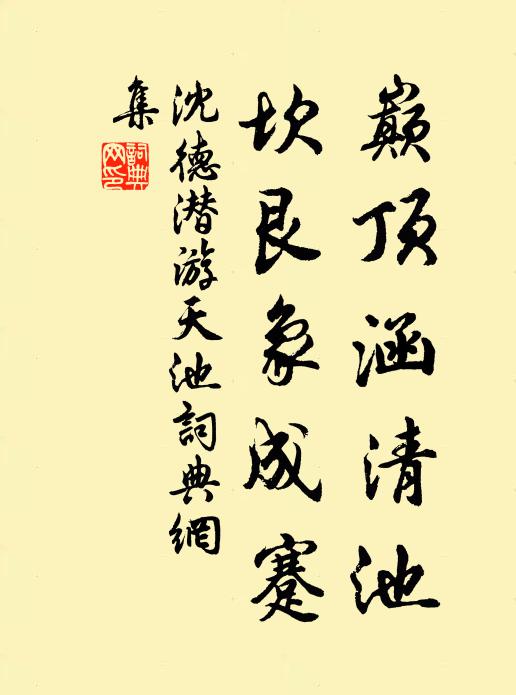 巅顶涵清池
坎艮象成蹇
沈德潜游天池詞典網
集
詞典
网印